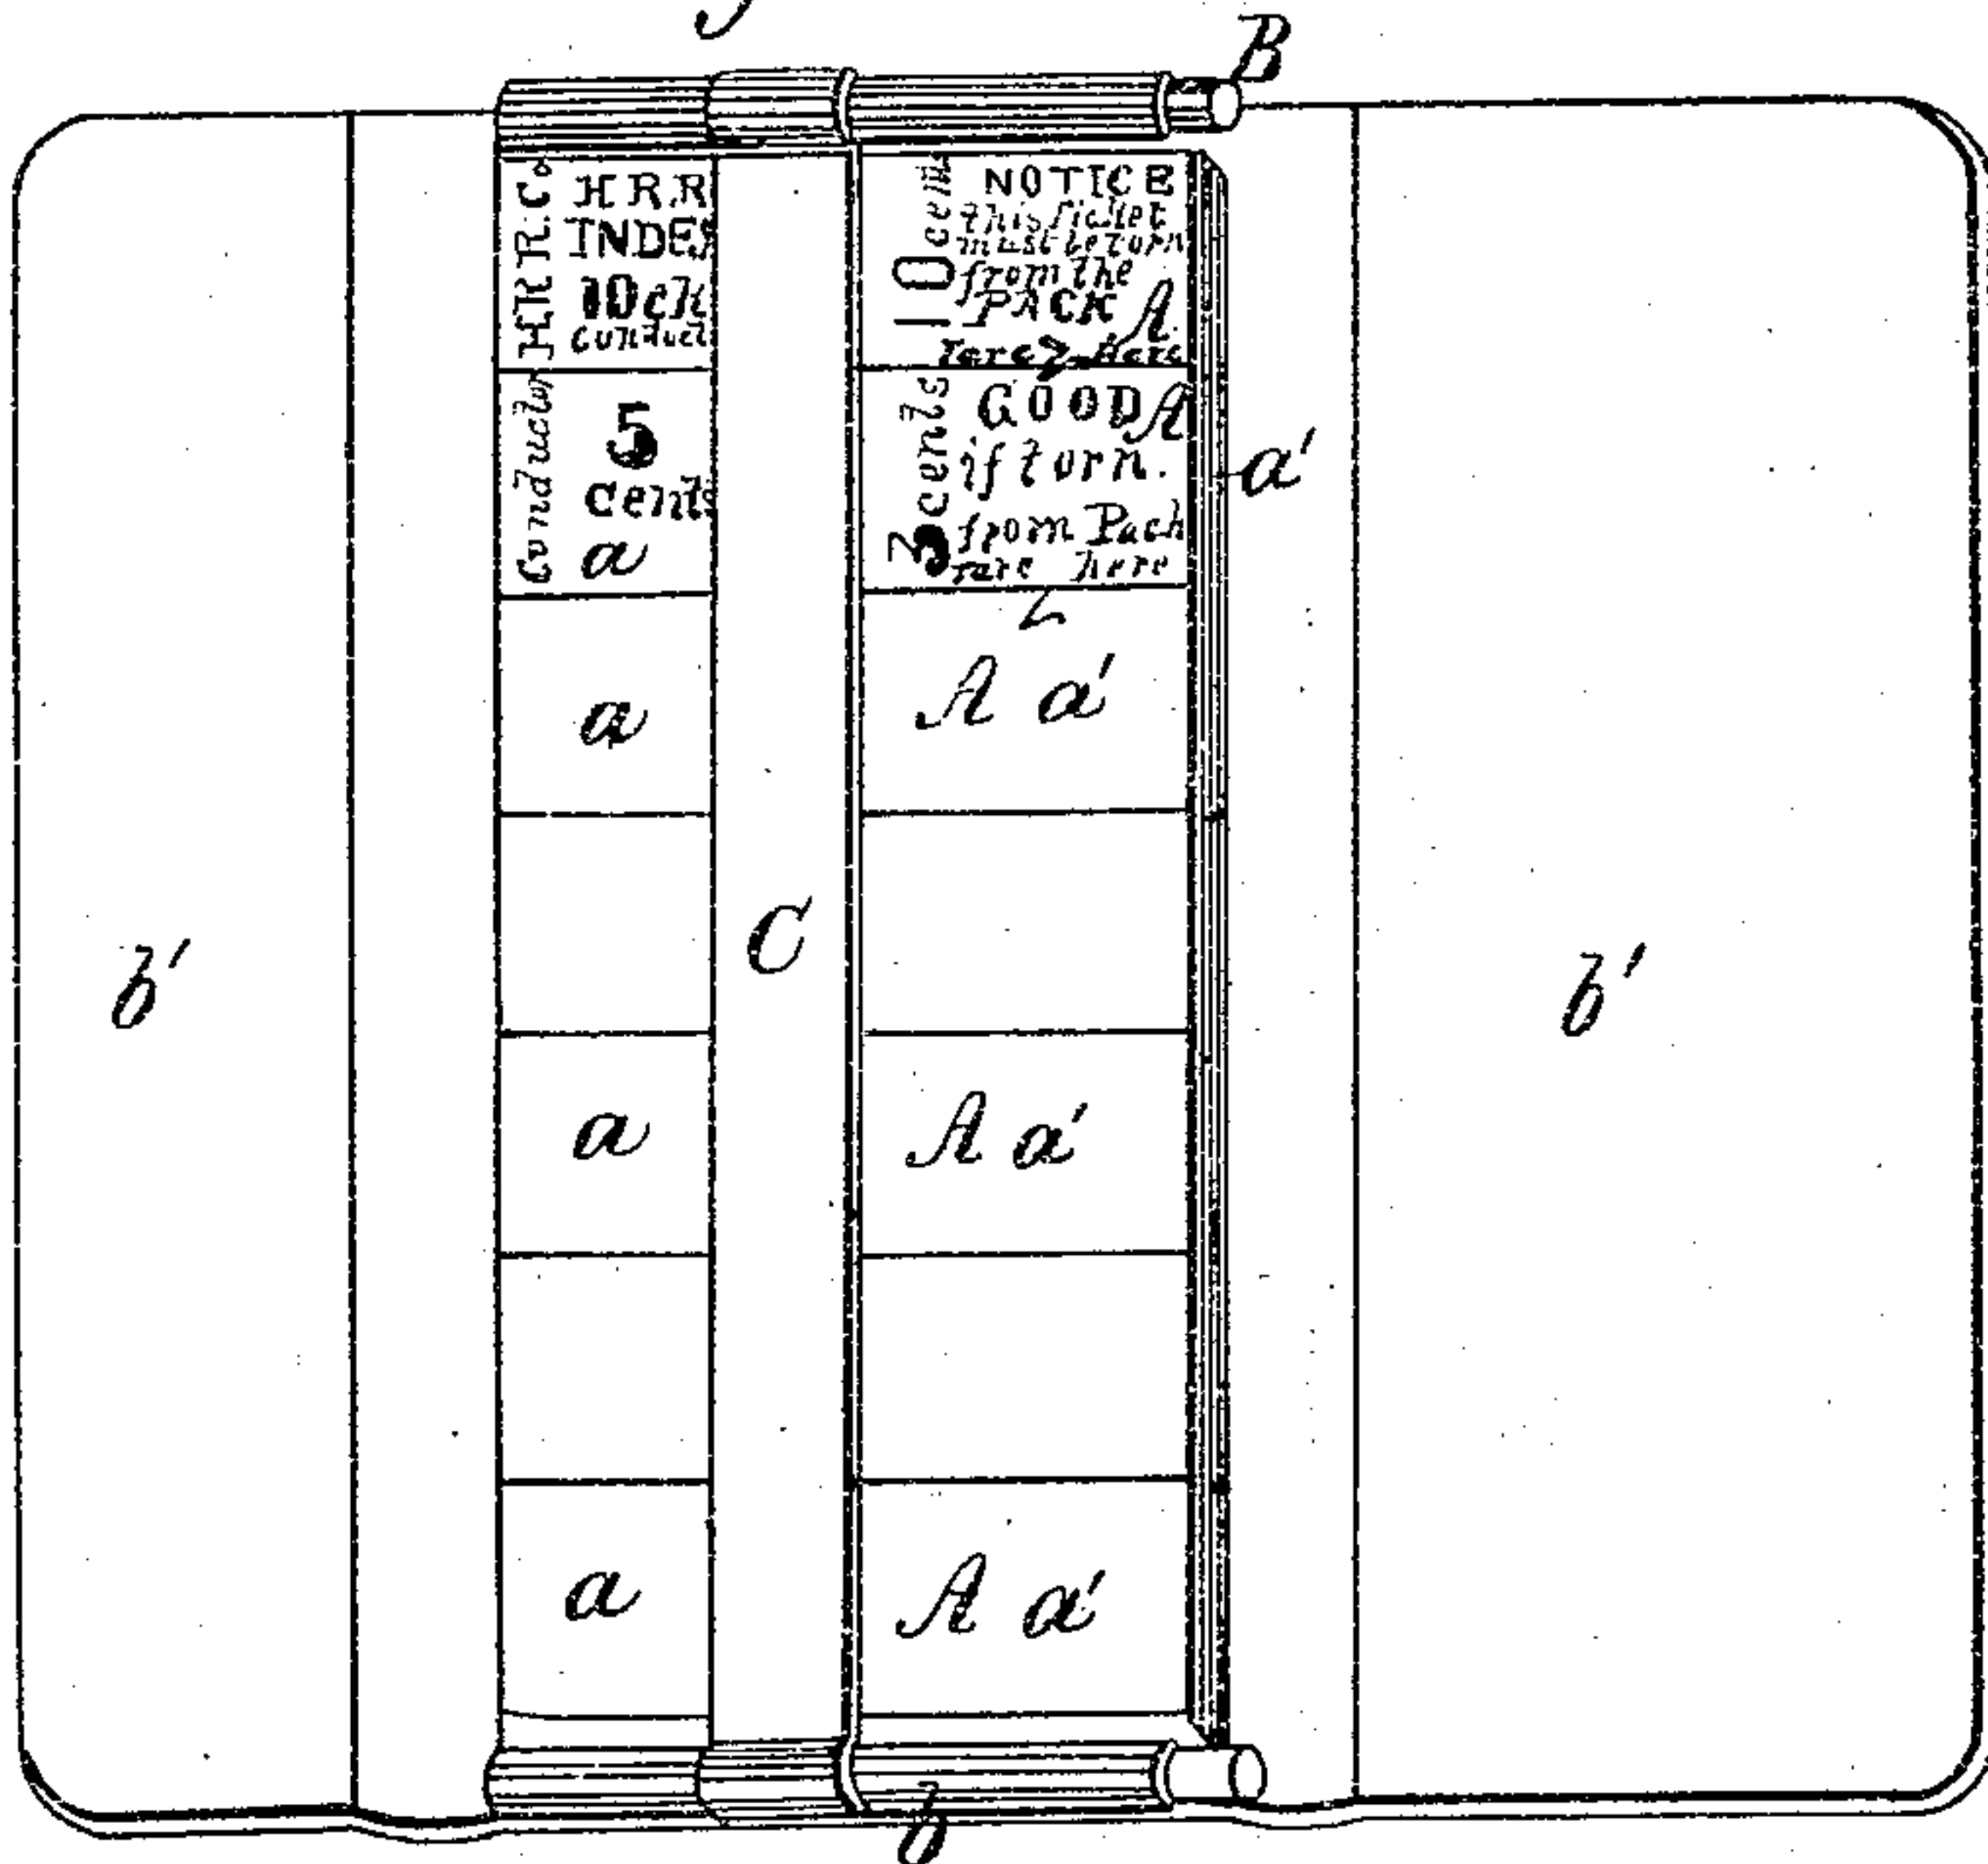 B
H.R.R.Co.
H R R
INDES
10 cts
Conduct
10 cem
NOTICE
this Ticket
must be torn
from the
PACK A.
Tare Here
Conductor
5
cents
a
3 cents
GOOD A
if torn.
from Pack
Tare here
a'
a
A a'
C
b'
b'
a
A a'
a
A a'
b